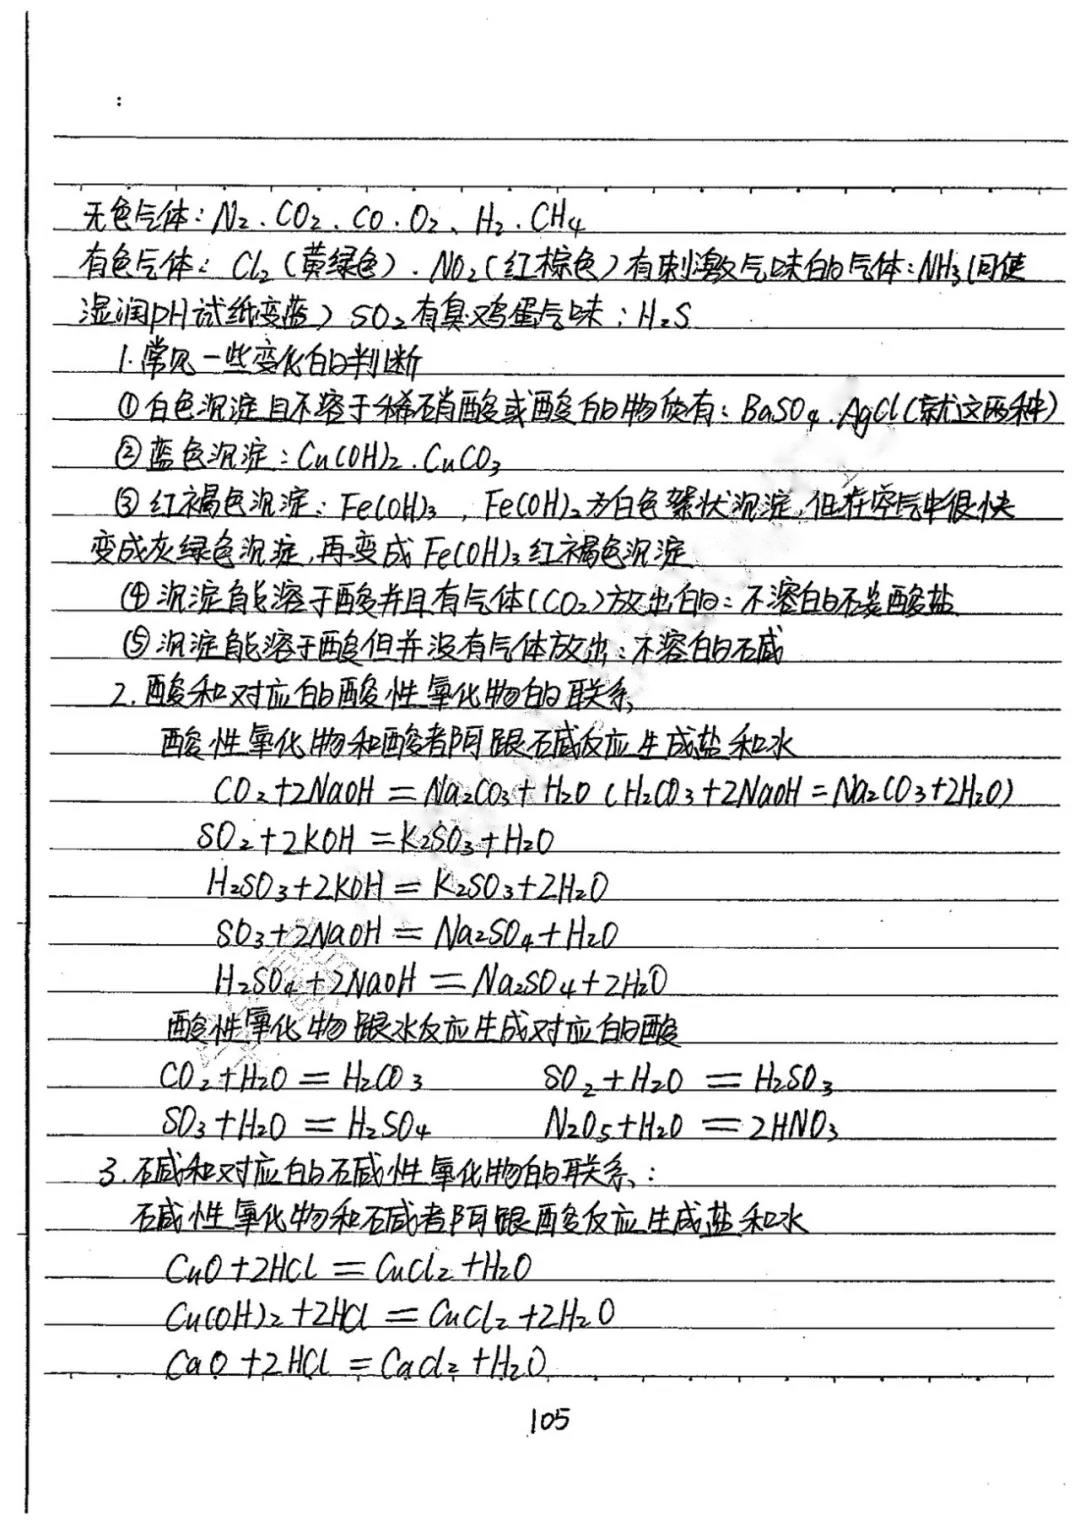 :
无色气体：N₂、CO₂、CO、O₂、H₂、CH₄
有色气体：Cl₂（黄绿色）、NO₂（红棕色）有刺激气味的气体：NH₃（同使
湿润pH试纸变蓝）SO₂有臭鸡蛋气味：H₂S
1.常见一些变化的判断
①白色沉淀且不溶于稀硝酸或酸的物质有：BaSO₄、AgCl（就这两种）
②蓝色沉淀：Cu(OH)₂、CuCO₃
③红褐色沉淀：Fe(OH)₃，Fe(OH)₂为白色絮状沉淀，但在空气中很快
变成灰绿色沉淀，再变成Fe(OH)₃红褐色沉淀
④沉淀能溶于酸并且有气体（CO₂）放出的：不溶的碳酸盐
⑤沉淀能溶于酸但并没有气体放出：不溶的碱
2.酸和对应的酸性氧化物的联系
酸性氧化物和酸者阿跟碱反应生成盐和水
CO₂+2NaOH=Na₂CO₃+H₂O（H₂CO₃+2NaOH=Na₂CO₃+2H₂O）
SO₂+2KOH=K₂SO₃+H₂O
H₂SO₃+2KOH=K₂SO₃+2H₂O
SO₃+2NaOH=Na₂SO₄+H₂O
H₂SO₄+2NaOH=Na₂SO₄+2H₂O
酸性氧化物跟水反应生成对应的酸
CO₂+H₂O=H₂CO₃ SO₂+H₂O=H₂SO₃
SO₃+H₂O=H₂SO₄ N₂O₅+H₂O=2HNO₃
3.碱和对应的碱性氧化物的联系：
碱性氧化物和碱者阿跟酸反应生成盐和水
CuO+2HCl=CuCl₂+H₂O
Cu(OH)₂+2HCl=CuCl₂+2H₂O
CaO+2HCl=CaCl₂+H₂O
105